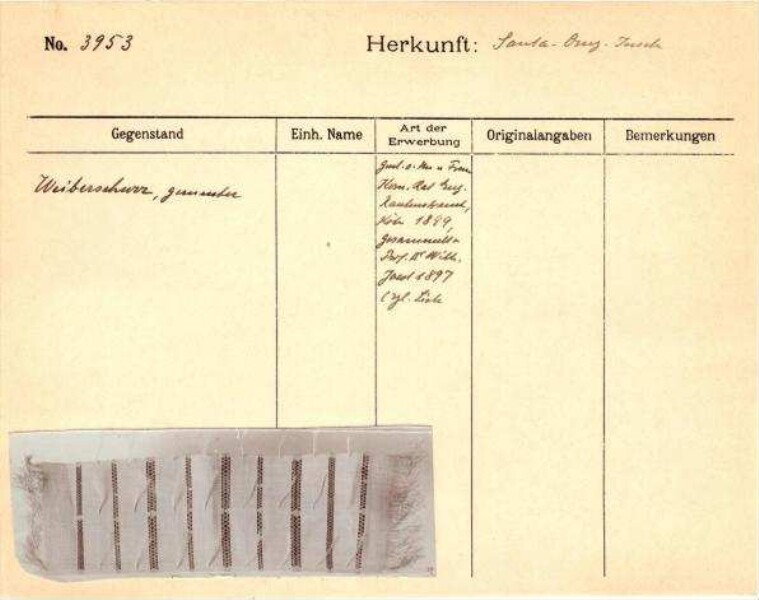 No. 3953
Herkunft: Santa-Cruz-Inseln
Gegenstand
Einh. Name
Art der Erwerbung
Originalangaben
Bemerkungen
Weiberschurz, gemustert
Frau
Kom. Rat Eug.
Rautenstrauch,
Köln 1899,
gesammelt v.
Prof. Dr Wilh.
Joest 1897
(vgl. Liste